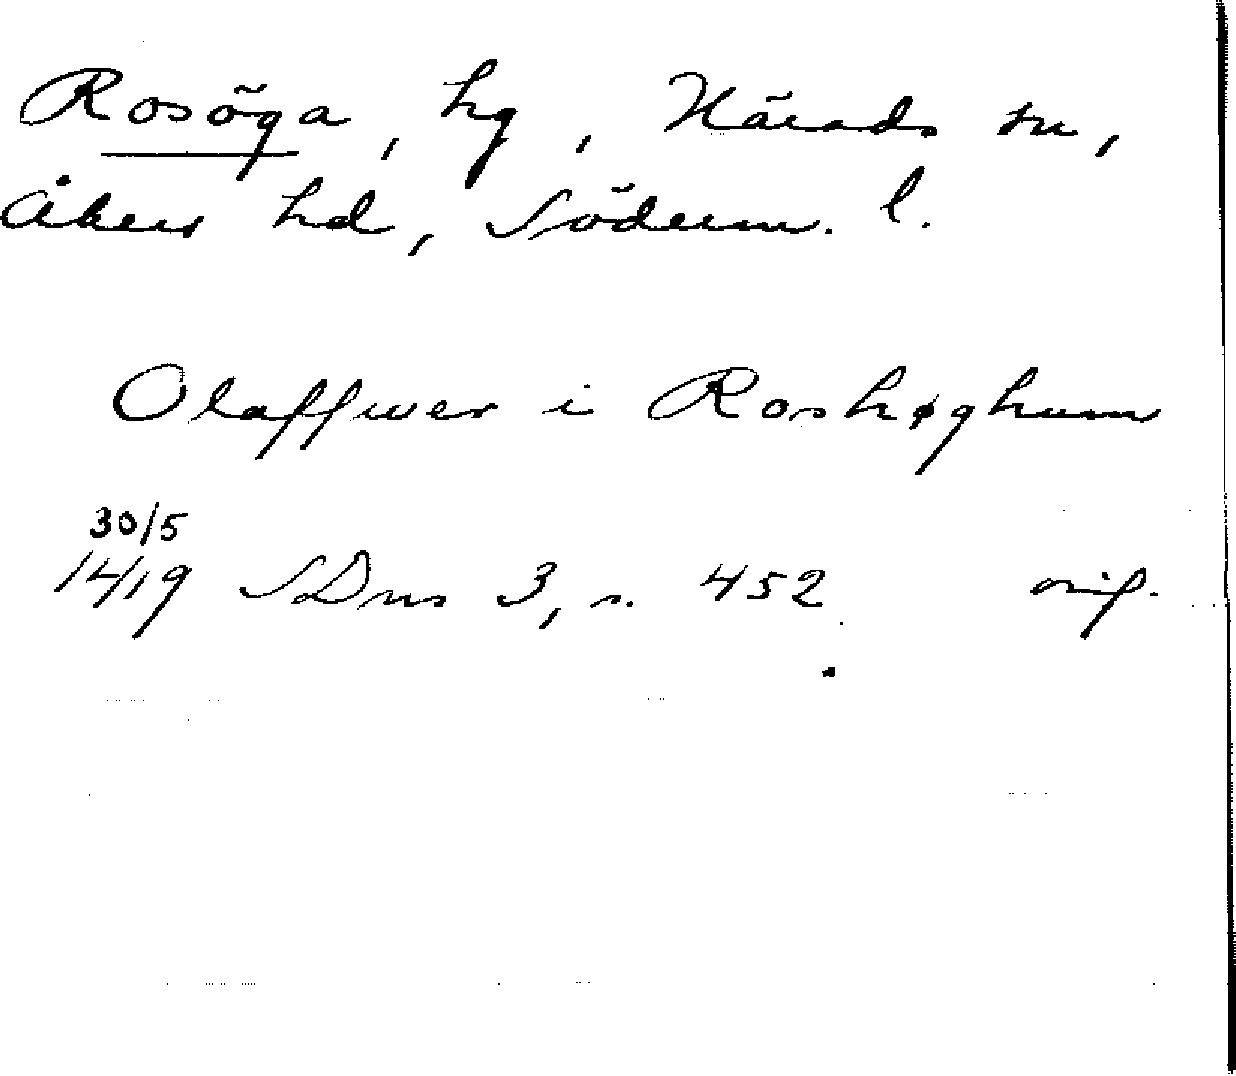 Rosöga, hg, Härads sn,
Åkers hd, Söderm. l.
Olaffwer i Roshøghum
30/5
1419 SDns 3, s. 452 orig.